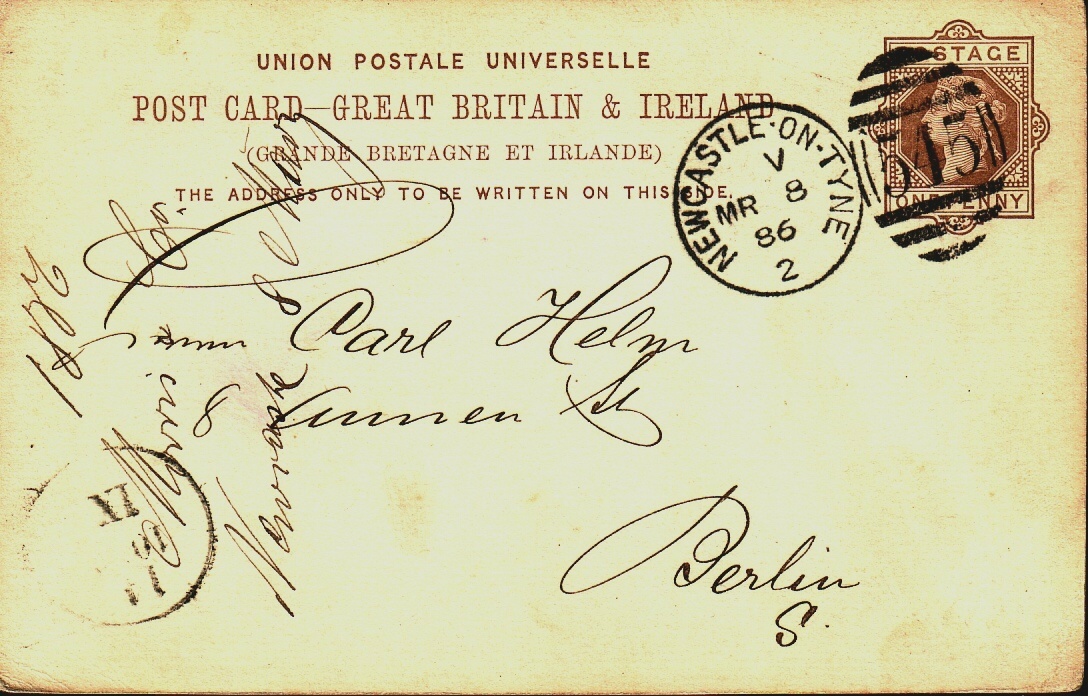 UNION POSTALE UNIVERSELLE
POST CARD—GREAT BRITAIN & IRELAND
(GRANDE BRETAGNE ET IRLANDE)
THE ADDRESS ONLY TO BE WRITTEN ON THIS SIDE.
POSTAGE
ONE PENNY
545
NEWCASTLE-ON-TYNE
V
MR 8
86
2
Carl Helm
8 Annen St
Berlin
S.
1886
8
IX